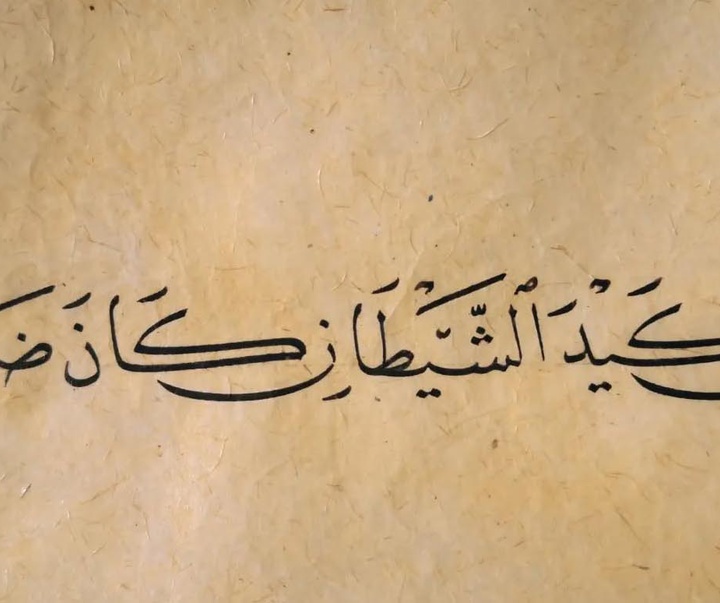 كَيْدَ ٱلشَّيْطَانِ كَانَ ضَ